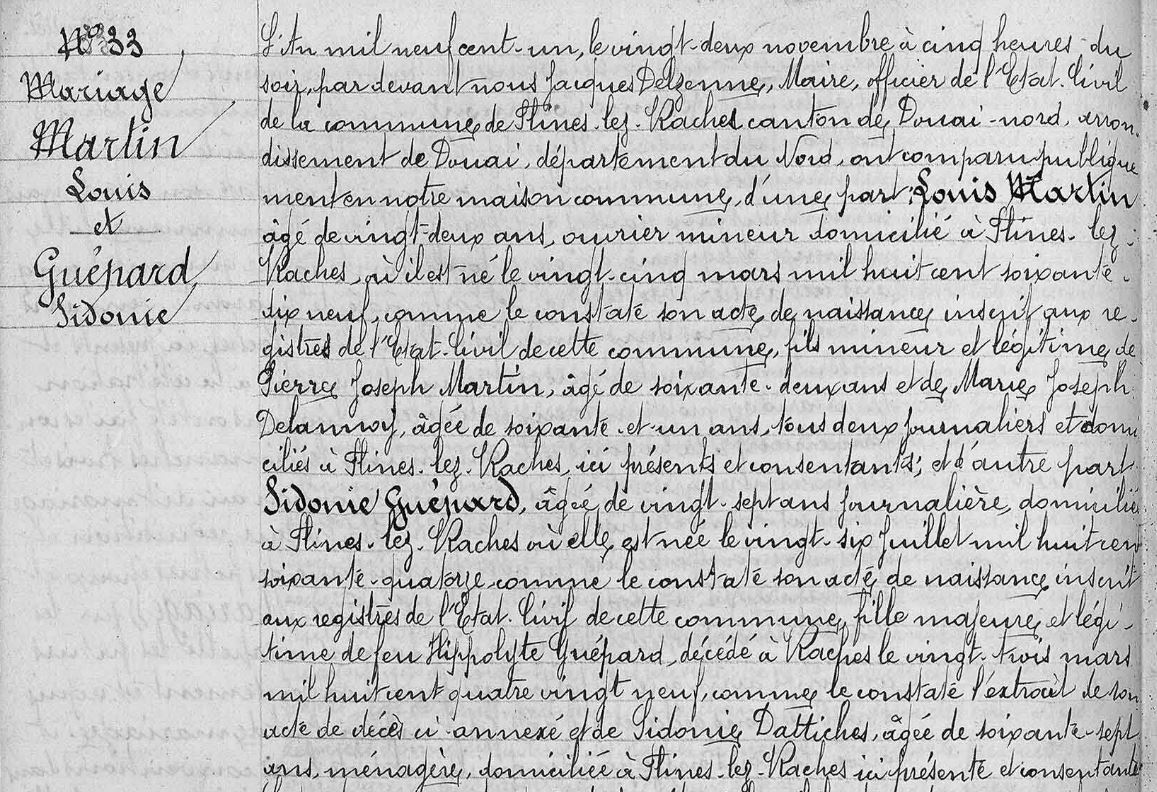 N° 33
Mariage
Martin
Louis
et
Guépard
Sidonie
L'An mil neuf cent-un, le vingt-deux novembre à cinq heures du
soir, par devant nous Jacques Delzenne, Maire, officier de l'Etat-Civil
de la commune de Flines-lez-Raches canton de Douai-nord, arron-
dissement de Douai, département du Nord, ont comparu publique
ment en notre maison commune, d'une part, Louis Martin
âgé de vingt-deux ans, ouvrier mineur domicilié à Flines-lez-
Raches, où il est né le vingt-cinq mars mil huit cent soixante-
dix neuf, comme le constate son acte de naissance inscrit aux re-
gistres de l'Etat-Civil de cette commune, fils mineur et légitime de
Pierre Joseph Martin, âgé de soixante-deux ans et de Marie Joseph
Delannoy, âgée de soixante-et-un ans, tous deux journaliers et domi
ciliés à Flines-lez-Raches, ici présents et consentants; et d'autre part
Sidonie Guépard, âgée de vingt-sept ans journalière, domiciliée
à Flines-lez-Raches où elle est née le vingt-six Juillet mil huit cen
soixante-quatorze comme le constate son acte de naissance inscrit
aux registres de l'Etat-Civil de cette commune, fille majeure et légi-
time de feu Hippolyte Guépard, décédé à Raches le vingt-trois mars
mil huit cent quatre vingt neuf, comme le constate l'extrait de son
acte de décès ci-annexé et de Sidonie Dattiches, âgée de soixante-sept
ans, ménagère, domiciliée à Flines-lez-Raches ici présente et consentante